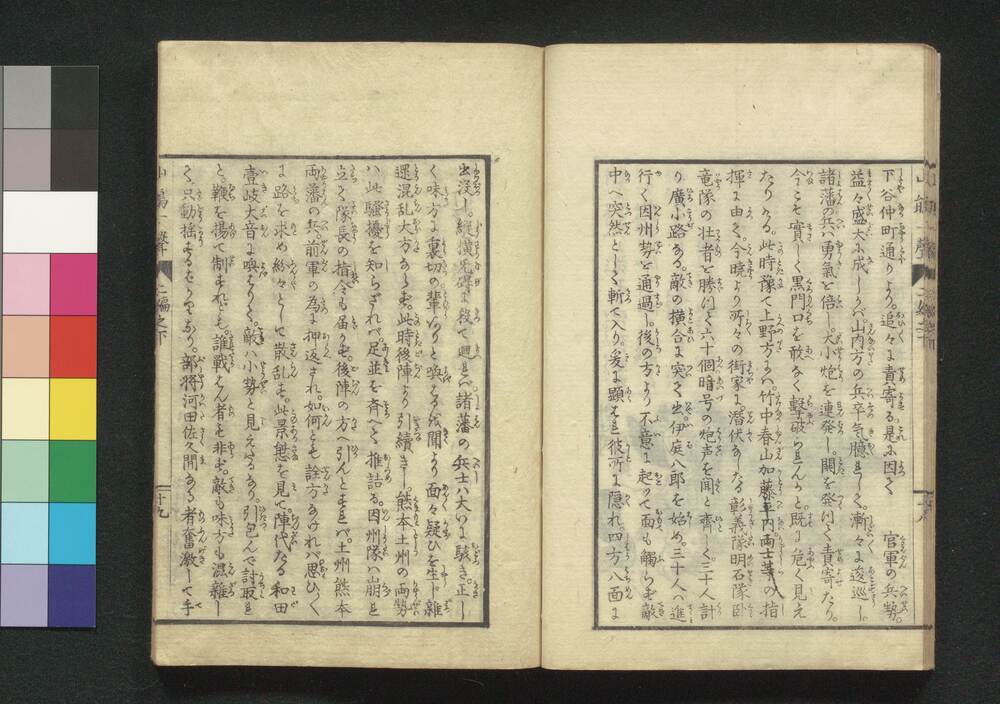 下谷仲町通りより。追々に責寄る是に因て　官軍の兵勢。
益々盛大に成しかバ山内方の兵卒気臆しく。漸々に逡巡し。
諸藩の兵ハ勇気を倍し。大小炮を連発し。鬨を発つて責寄たり。
今こそ實しく黒門口を敢なく撃破られんかと。既に危く見え
たりける。此時豫て上野方にハ。竹中春山加藤平内両士等の指
揮に由て。今暁より所々の街家に潜伏ゐたる彰義隊明石隊臥
竜隊の壮者を勝つて六十個暗号の炮声を聞と斉しく。三十人計
り廣小路なる。敵の横合に突て出。伊庭八郎を始め。三十人ハ進
行く因州勢を通過し。後の方より不意に起つて面も觸らず敵
中へ突然として斬て入り。爰に顕れ彼所に隠れ。四方八面に
十八
出没し。縦横先碑に後て廻れバ諸藩の兵士ハ大いに駭き。正し
く味方に裏切の輩ありと喚ころ仗聞より面々疑ひを生じ。雑
遝混乱大方ならず。此時後陣より引続きし。熊本土州の両勢
ハ此騒擾を知らざれバ。足並を斉へて推詰る。因州隊ハ崩れ
立て隊長の指令も届かず。後陣の方へ引んとすれバ。土州熊本
両藩の兵。前軍の為に押返され。如何とも詮方なけれバ思ひ〳〵
に路を求め紛々として散乱す。此景態を見て。陣代たる和田
壹岐大音に喚はりて。敵ハ小勢と見えたるなり。引包んで討取れ
と。鞭を揚て制すれども。誰戦はん者も非ず。敵も味方も混雑し
て。只動揺するばかりなり。部将河田佐久間なる者奮激して手
二編之下
十九